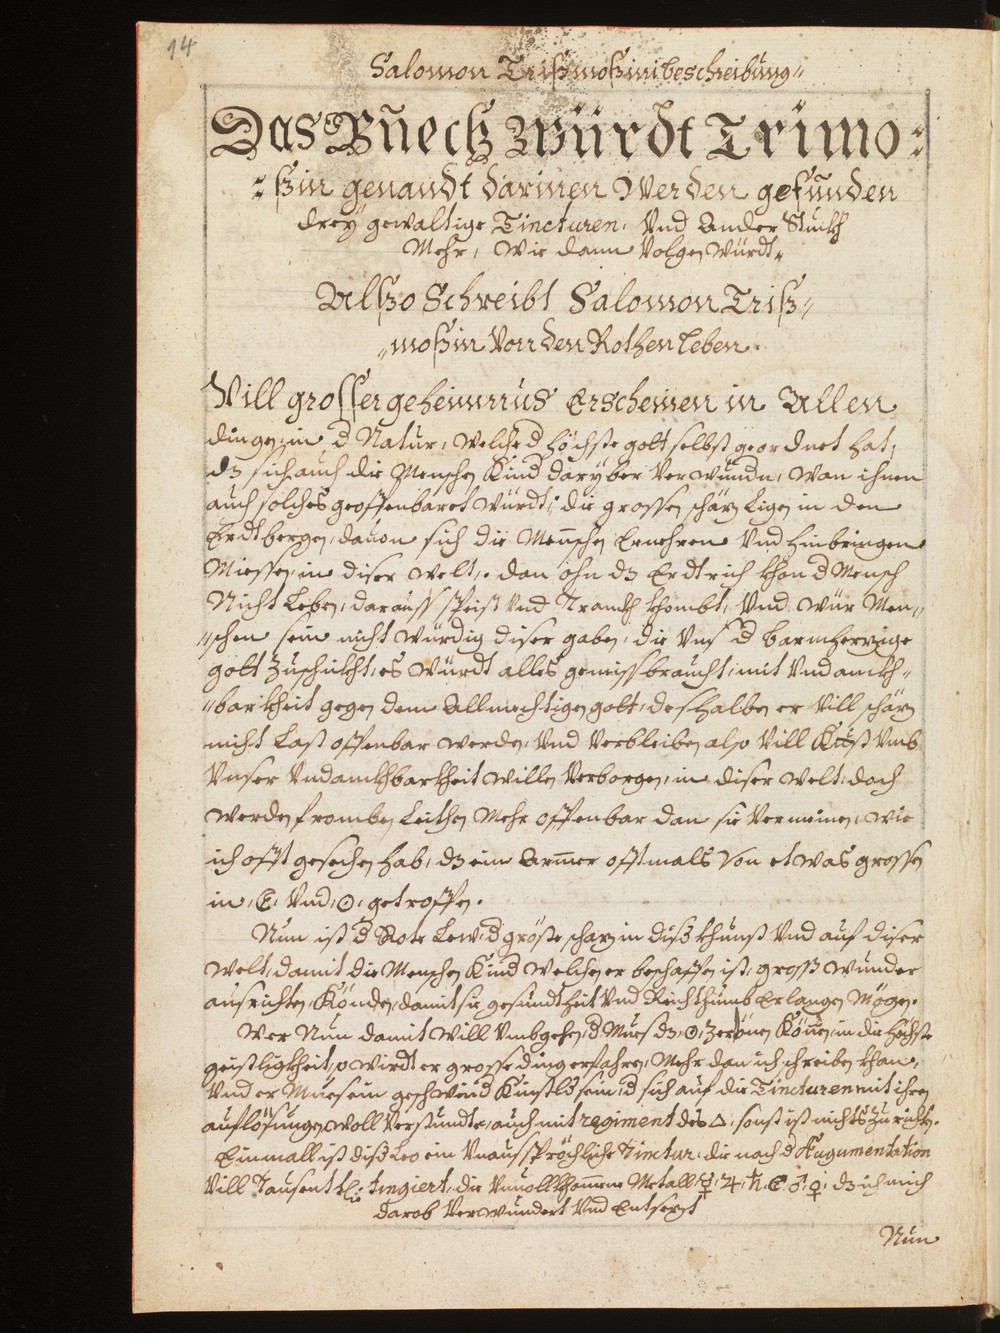 14
Salomon Trißmoßini beschreibung
Das Bůech Würdt Trimo=
=ßin genandt darinen Werden gefunden
drey gewaltige Tincturen, Vnd Ander Stuckh
Mehr, Wie dann Volgen Würdt
Alßo Schreibt Salomon Triß=
=moßin Von den Rothen Leben.
Vill grosser geheimnus Erscheinen in Allen
dingen in d Natur, welche d höchste gott selbst geordnet hat,
dz sich auch die Menschen Kind darüber Verwundn, Wan ihnen
auch solches geoffenbaret Würdt, die grossen schäz Ligen in den
Erdtbergen, dauon sich die Menschen Ernehren Vnd hinbringen
Miessen, in diser Welt, dan ohn dz Erdtrich khan d Mensch
Nicht Leben, darauss speiß Vnd Tranckh khombt, Vnd wür Men=
=schen sein nicht Würdig diser gaben, die Vns d barmherzige
gott Zuschickht, es Würdt alles gemissbraucht, mit Vndanckh=
=barkheit gegen dem Allmechtigen gott, deshalben er Vill schäz
nicht Last offenbar werden, Vnd Verbleiben also Vill Künst Vmb
Vnser Vndanckhbarkheit willen Verborgen, in diser Welt, doch
werden fromben Leithen Mehr offenbar dan sie Vermeinen, wie
ich offt gesechen hab, dz ein Armer offtmals Von etwas grossen
in, ☾, Vnd, ☉, getroffen.
Nun ist d Rote Lew, d gröste schaz in diß khunst Vnd auf diser
Welt, damit die Menschen Kind welchen er beschaffen ist, gross wunder
ausrichten Könden, damit sie gesundtheit Vnd Reichthumb Erlangen Mögen.
Wer Nun damit Will Vmbgehen, d Mues dz, ☉, Zer Können, in die höchste
geistligkheit, so wirdt er grosse ding erfahren, Mehr dan ich schreiben khan,
Vnd er Mues ein geschwind Künstler sein, d sich auf die Tincturen mit ihren
auflösungen woll Verstundte, auch mit regiment des △, sonst ist nichts Zurichten.
Einmall ist diß Leo ein Vnaussspröchliche Tinctur, die nach d Augumentation
Vill Tausent tl: tingiert, die Vnuollkhomne Metall ☿, ♃, ♄, ☾, ♂, ♀, dz ich mich
darob Verwundert Vnd Entsezt
Nun